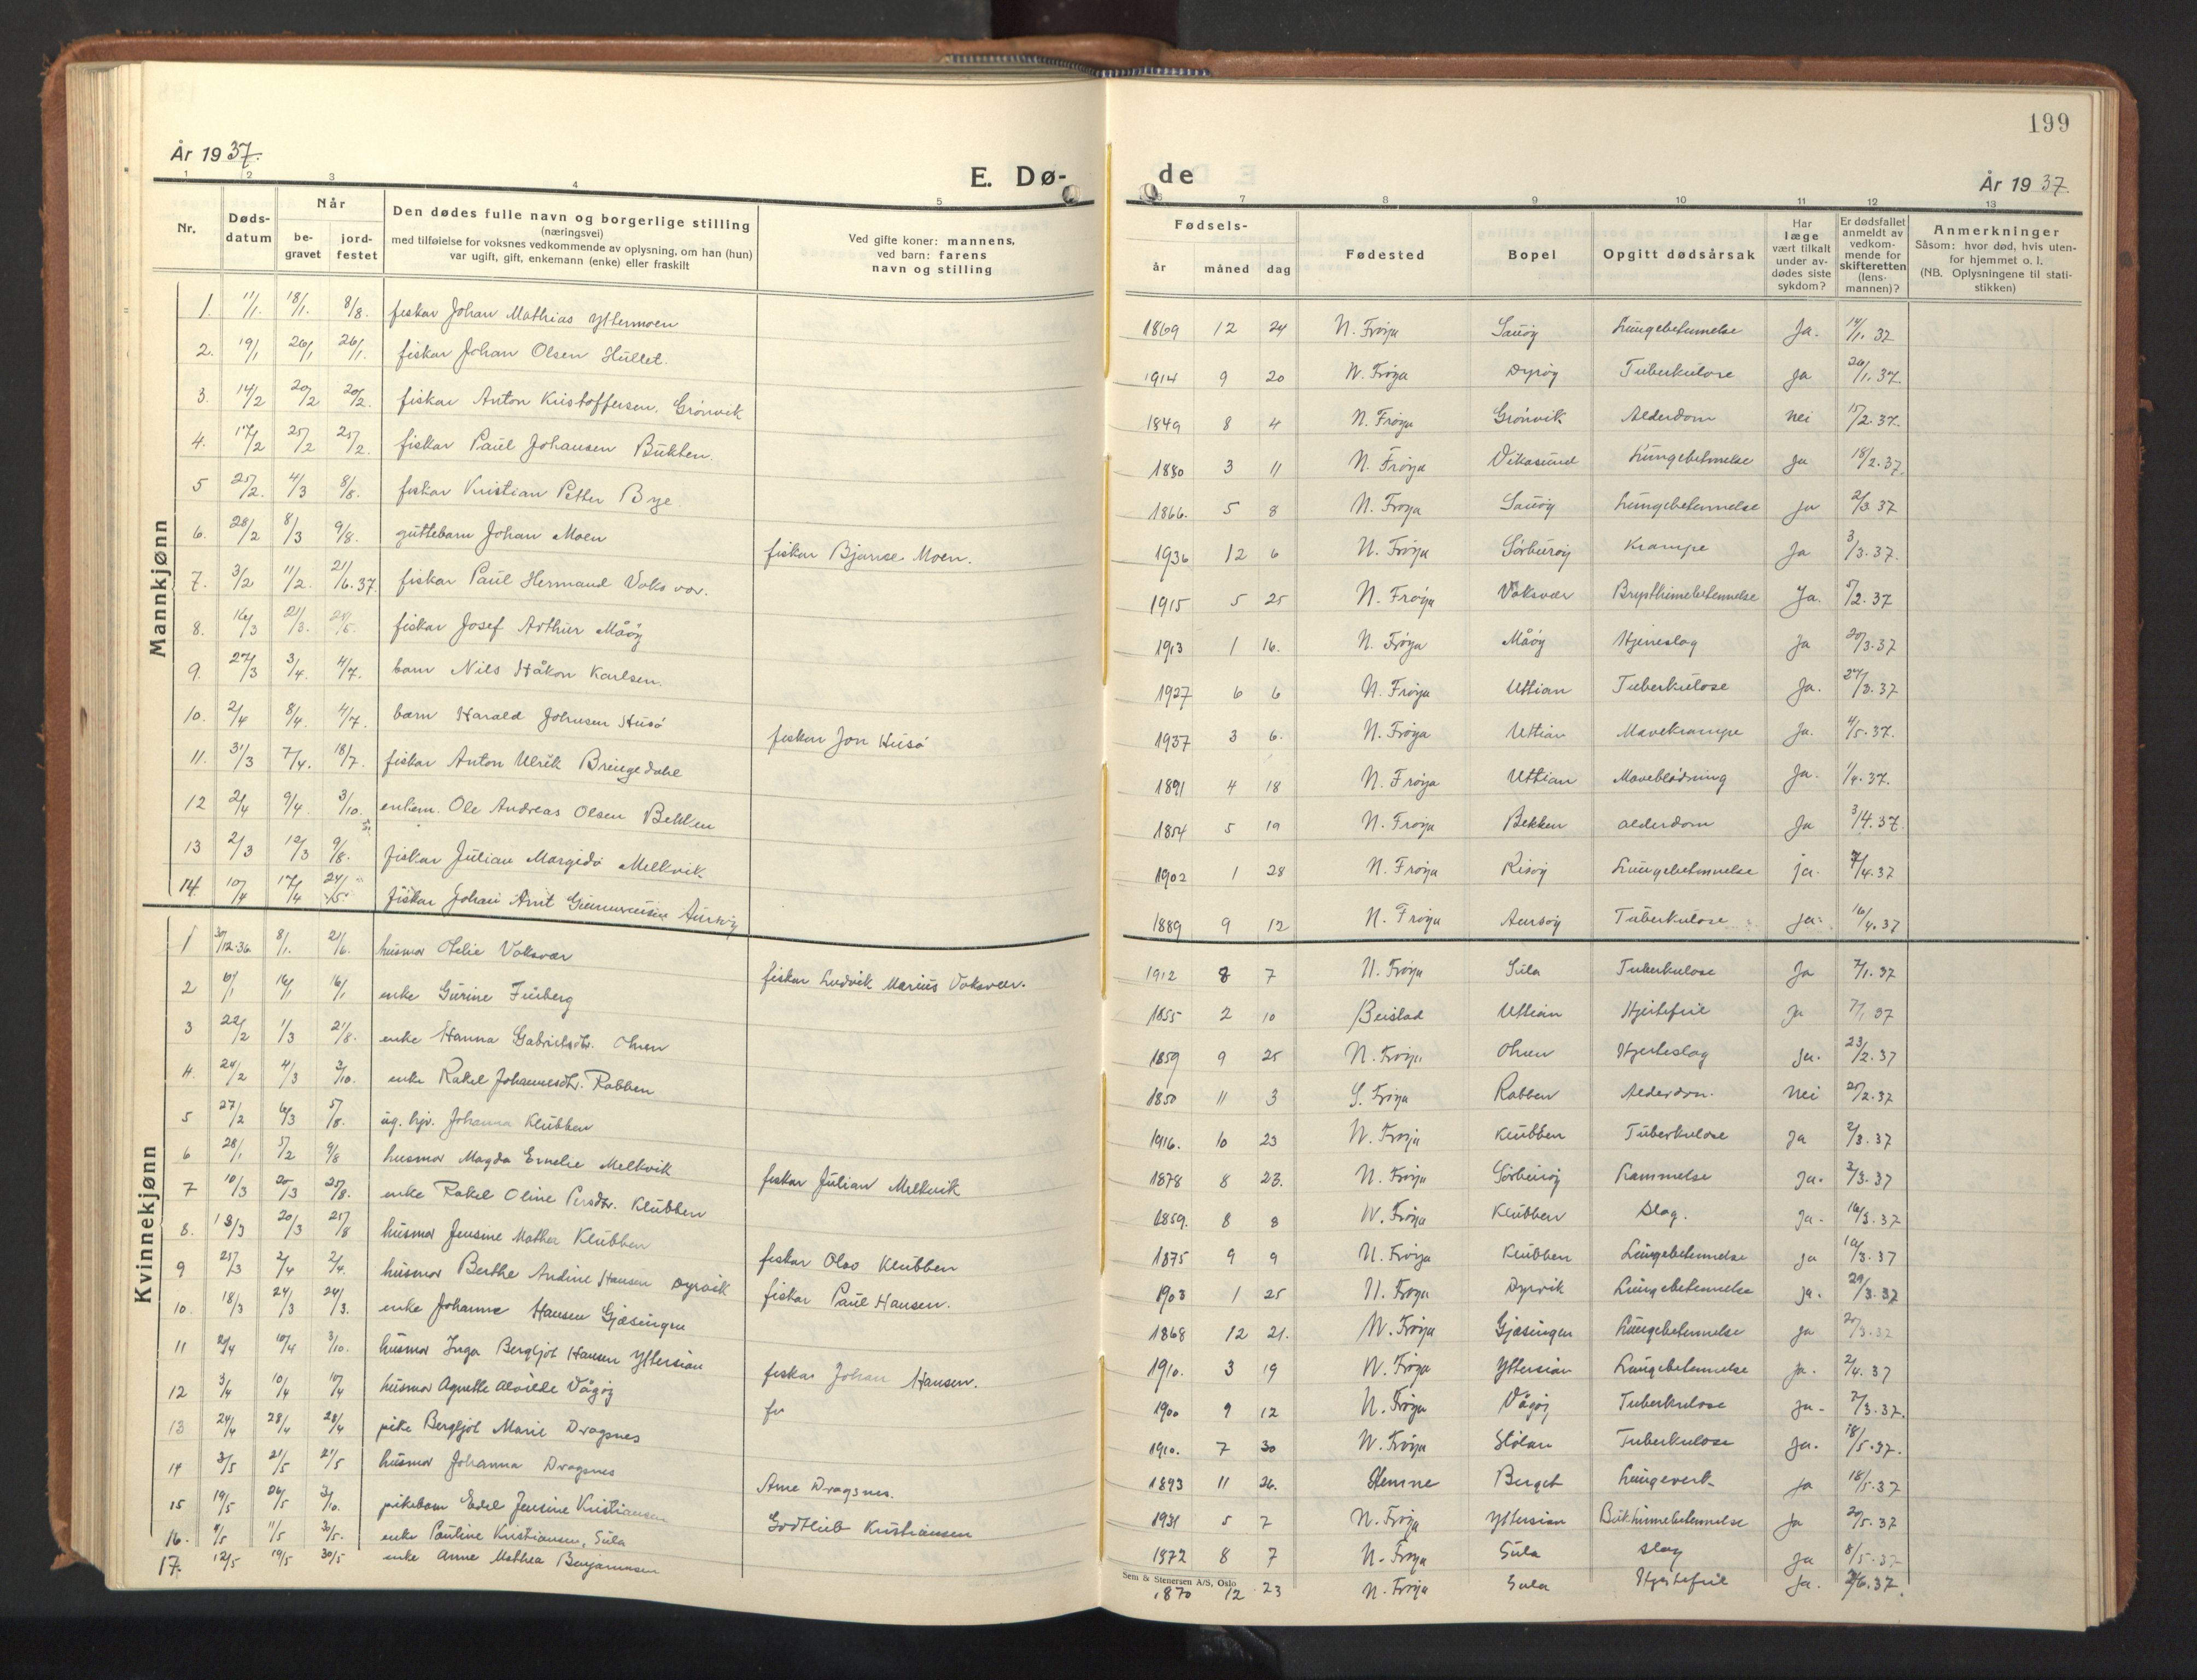 199
År 1937.
E. Dø-
de
År 1937.
1 2 3 4 5 7 8 9 10 11 12 13
Nr.
Døds-
datum
Når
be-
gravet
jord-
festet
Den dødes fulle navn og borgerlige stilling
(næringsvei)
med tilføielse for voksnes vedkommende av oplysning, om han (hun)
var ugift, gift, enkemann (enke) eller fraskilt
Ved gifte koner: mannens,
ved barn: farens
navn og stilling
Fødsels-
år måned dag
Fødested
Bopel
Opgitt dødsårsak
Har
læge
vært tilkalt
under av-
dødes siste
sykdom?
Er dødsfallet
anmeldt av
vedkom-
mende for
skifteretten
(lens-
mannen)?
Anmerkninger
Såsom: hvor død, hvis uten-
for hjemmet o. l.
(NB. Oplysningene til stati-
stikken)
Mannkjønn
1. 11/1. 18/1. 8/8. fiskar Johan Mathias Yttermoen 1869 12 24 N. Frøya Sauøy Lungebetennelse Ja. 14/1. 37
2. 19/1 26/1 26/1. fiskar Johan Olsen Hullet. 1914 9 20 N. Frøya Dyrøy Tuberkulose Ja 26/1. 37.
3. 14/2 20/2 20/2. fiskar Anton Kristoffersen, Grønvik 1849 8 4 N. Frøya Grønvik Alderdom nei 15/2. 37.
4. 17/2 25/2 25/2. fiskar Paul Johansen Bukten. 1880 3 11 N. Frøya Vikasund Lungebetennelse Ja 18/2. 37.
5 25/2. 4/3 8/8. fiskar Kristian Petter Bye. 1866. 5 8 N. Frøya Sauøy Lungebetennelse Ja 2/3 37
6. 28/2 8/3 9/8. guttebarn Johan Moen fiskar Bjarne Moen. 1936 12 6 N. Frøya Sørburøy Krampe Ja 3/3. 37.
7. 3/2 11/2. 21/6. 37 fiskar Paul Hermand Voksvær. 1915 5 25 N. Frøya Voksvær Brysthinnebetennelse Ja. 5/2. 37
8. 16/3 21/3. fiskar Josef Arthur Måøy 1913 1 16. N. Frøya Måøy Hjerneslag Ja 20/3. 37
9. 27/3 3/4. 4/7. barn Nils Håkon Karlsen. 1927 6 6 N. Frøya Uttian Tuberkulose Ja. 27/3. 37
10. 2/4 8/4. 4/7. barn Harald Johnsen Husø fiskar Jon Husø 1937 3 6. N. Frøya Uttian Mavekrampe Ja. 4/5. 37.
11. 31/3 7/4. 18/7. fiskar Anton Ulrik Bringedahl 1891 4 18 N. Frøya Uttian Maveblødning Ja. 1/4. 37.
12 2/4 9/4. 3/10. enkem. Ole Andreas Olsen Bekken 1854 5 19 N. Frøya Bekken alderdom Ja 3/4. 37.
13 2/3 12/3 9/8. fiskar Julian Margido Melkvik 1902 1 28 N. Frøya Risøy Lungebetennelse ja. 7/4. 37
14. 10/4 17/4 24/5. fiskar Johan Arnt Aursøy 1889 9 12 N. Frøya Aursøy Tuberkulose ja. 16/4. 37
Kvinnekjønn
1 30/12. 36 8/1. 21/6. husmor Otelie Voksvær fiskar Ludvik Marius Voksvær. 1912 8 7 N. Frøya Sula Tuberkulose Ja 7/1. 37
2 6/1 16/1 16/1 enke Gurine Furberg 1855 2 10 Beistad Uttian Hjertefeil Ja 7/1. 37
3 22/2 1/3 21/8. enke Hanna Gabrielsdtr. Ohren 1859 9 25 N. Frøya Ohren Hjerteslag Ja. 23/2. 37
4. 24/2 4/3 3/10. enke Rakel Johannesdtr. Rabben 1850 11 3 S. Frøya Rabben Alderdom. nei 25/2. 37
5 27/2 6/3 5/8. ug. hjv. Johanna Klubben 1916. 10 23 N. Frøya Klubben Tuberkulose ja 2/3. 37
6 28/1 5/2 9/8 husmor Magda Emelie Melkvik fiskar Julian Melkvik 1878 8 23. N. Frøya Sørburøy Lammelse Ja. 2/3. 37
7 10/3 20/3 25/8. enke Rakel Oline Persdtr. Klubben 1859. 8 8 N. Frøya Klubben Slag. Ja. 16/3. 37
8. 13/3 20/3 25/8 husmor Jensine Mathea Klubben fiskar Olav Klubben 1875 9 9 N. Frøya Klubben Lungebetennelse Ja 19/3. 37
9 25/3 2/4 2/4. husmor Berthe Andine Hansen Dyrvik fiskar Paul Hansen. 1903 1 25 N. Frøya Dyrvik Lungebetennelse ja. 29/3. 37
10. 18/3 24/3 24/3. enke Johanne Hansen Gjæsingen 1868 12 21. N. Frøya Gjæsingen Lungebetennelse Ja 20/3. 37
11 2/4 10/4 3/10. husmor Inga Bergljot Hansen Yttersian fiskar Johan Hansen. 1910. 3 19 N. Frøya Yttersian Lungebetennelse Ja. 2/4. 37
12 3/4 10/4 10/4 husmor Agnethe Alvilde Vågøy 1900 9 12 N. Frøya Vågøy Tuberkulose ja. 2/3. 37.
13 24/4 28/4 28/4 pike Bergljot Marie Dragsnes 1910. 7 30 N. Frøya Stølan Tuberkulose Ja. 18/5. 37.
14 3/5 21/5 21/5 husmor Johanna Dragsnes Arne Dragsnes. 1893 11 26. Hemne Berget Lungeverk Ja 18/5. 37
15 19/5 26/5 3/10. pikebarn Edel Jensine Kristiansen Godtlieb Kristiansen 1931 5 7 N. Frøya Yttersian Bukhinnebetennelse Ja 20/5. 37
16. 4/5 11/5 30/5. enke Pauline Kristiansen, Sula 1872 8 7 N. Frøya Sula slag Ja 8/5. 37
17. 12/5 19/5 30/5 enke Anne Mathea Benjaminsen 1870 12 23 N. Frøya Sula Hjertefeil Ja.
Sem & Stenersen A/S, Oslo